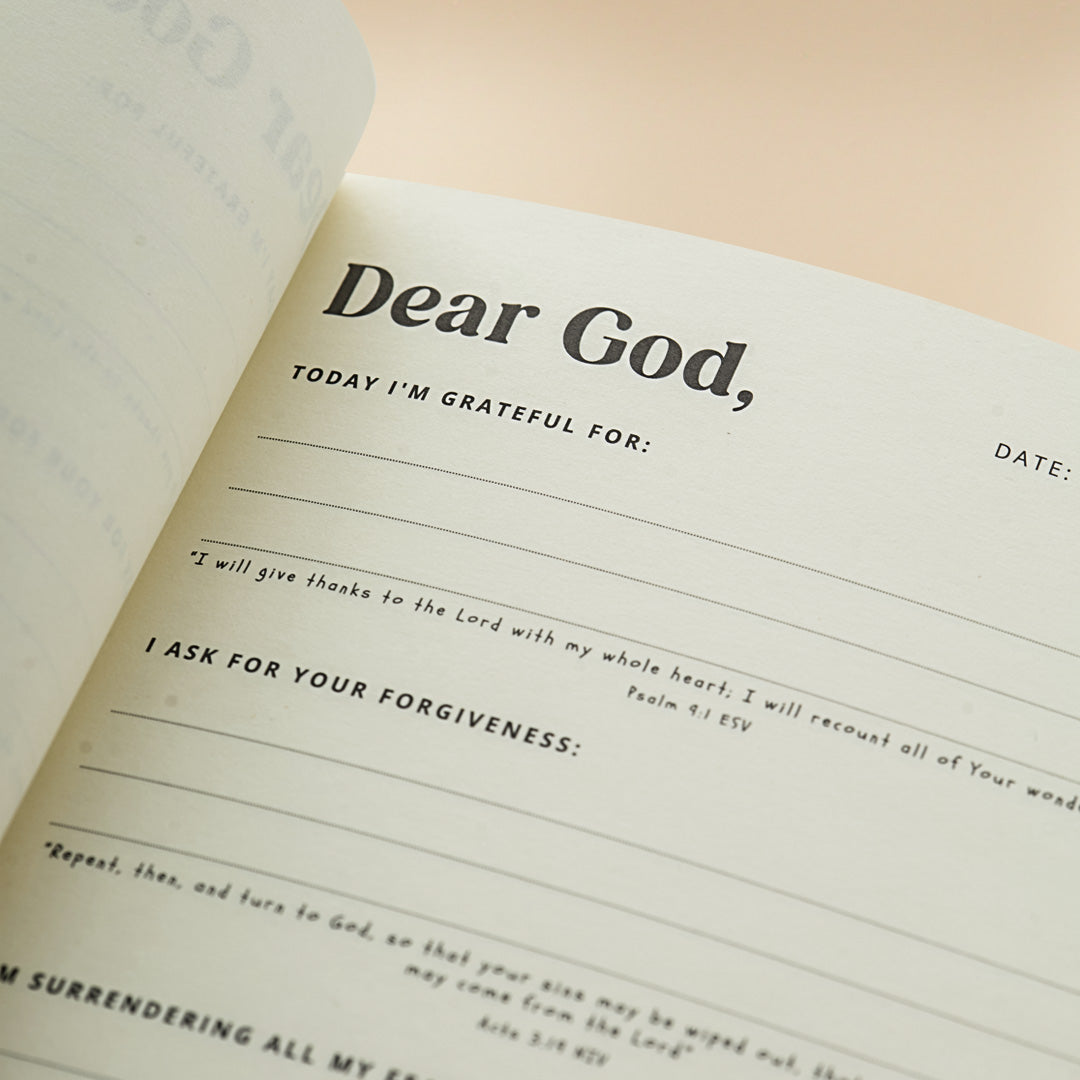 Dear God,
TODAY I'M GRATEFUL FOR:
DATE:
"I will give thanks to the Lord with my whole heart; I will recount all of Your
Psalm 9:1 ESV
I ASK FOR YOUR FORGIVENESS:
"Repent, then, and turn to God, so that your sins may be wiped out,
may come from the Lord"
Acts 3:19 NIV
SURRENDERING ALL MY